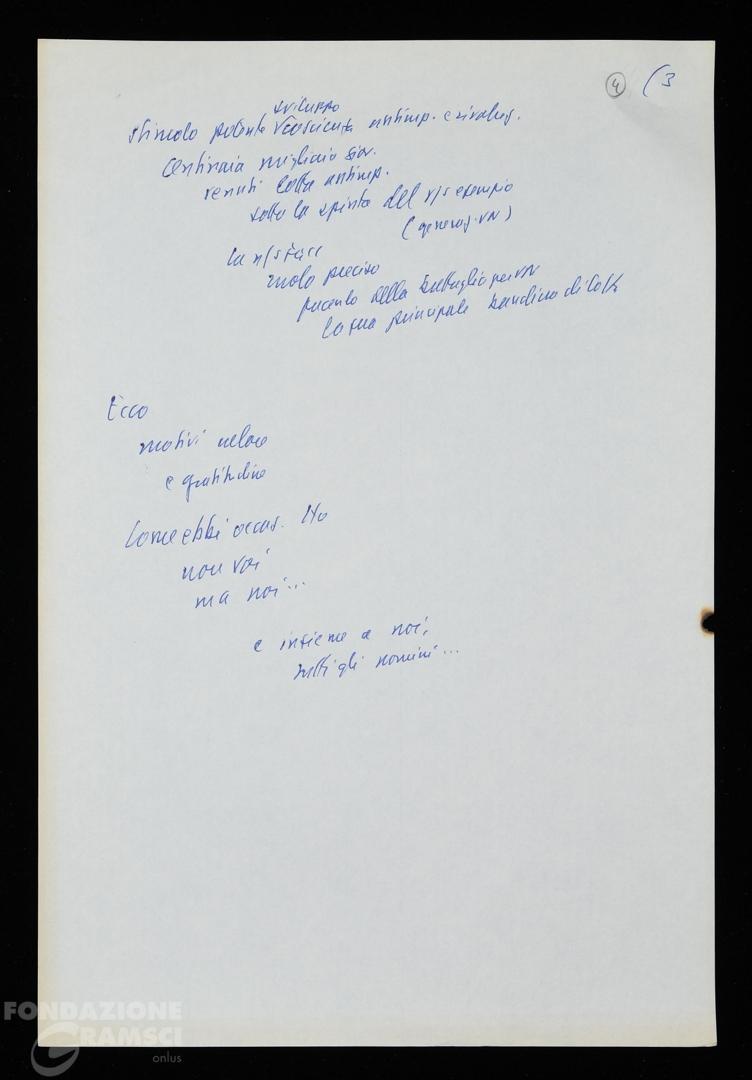 4 (3
sviluppo
stimolo potente coscienza antimp. e rivoluz.
Centinaia migliaia giov.
venuti lotta antimp.
sotto la spinta del v/s esempio
(generaz. VN)
La n/s FGCI
molo preciso
facendo della battaglia per VN
la sua principale bandiera di lotta
Ecco
motivi calore
e gratitudine
Come ebbi occas. Ho
non voi
ma noi...
e insieme a noi,
tutti gli uomini...
FONDAZIONE
GRAMSCI
onlus